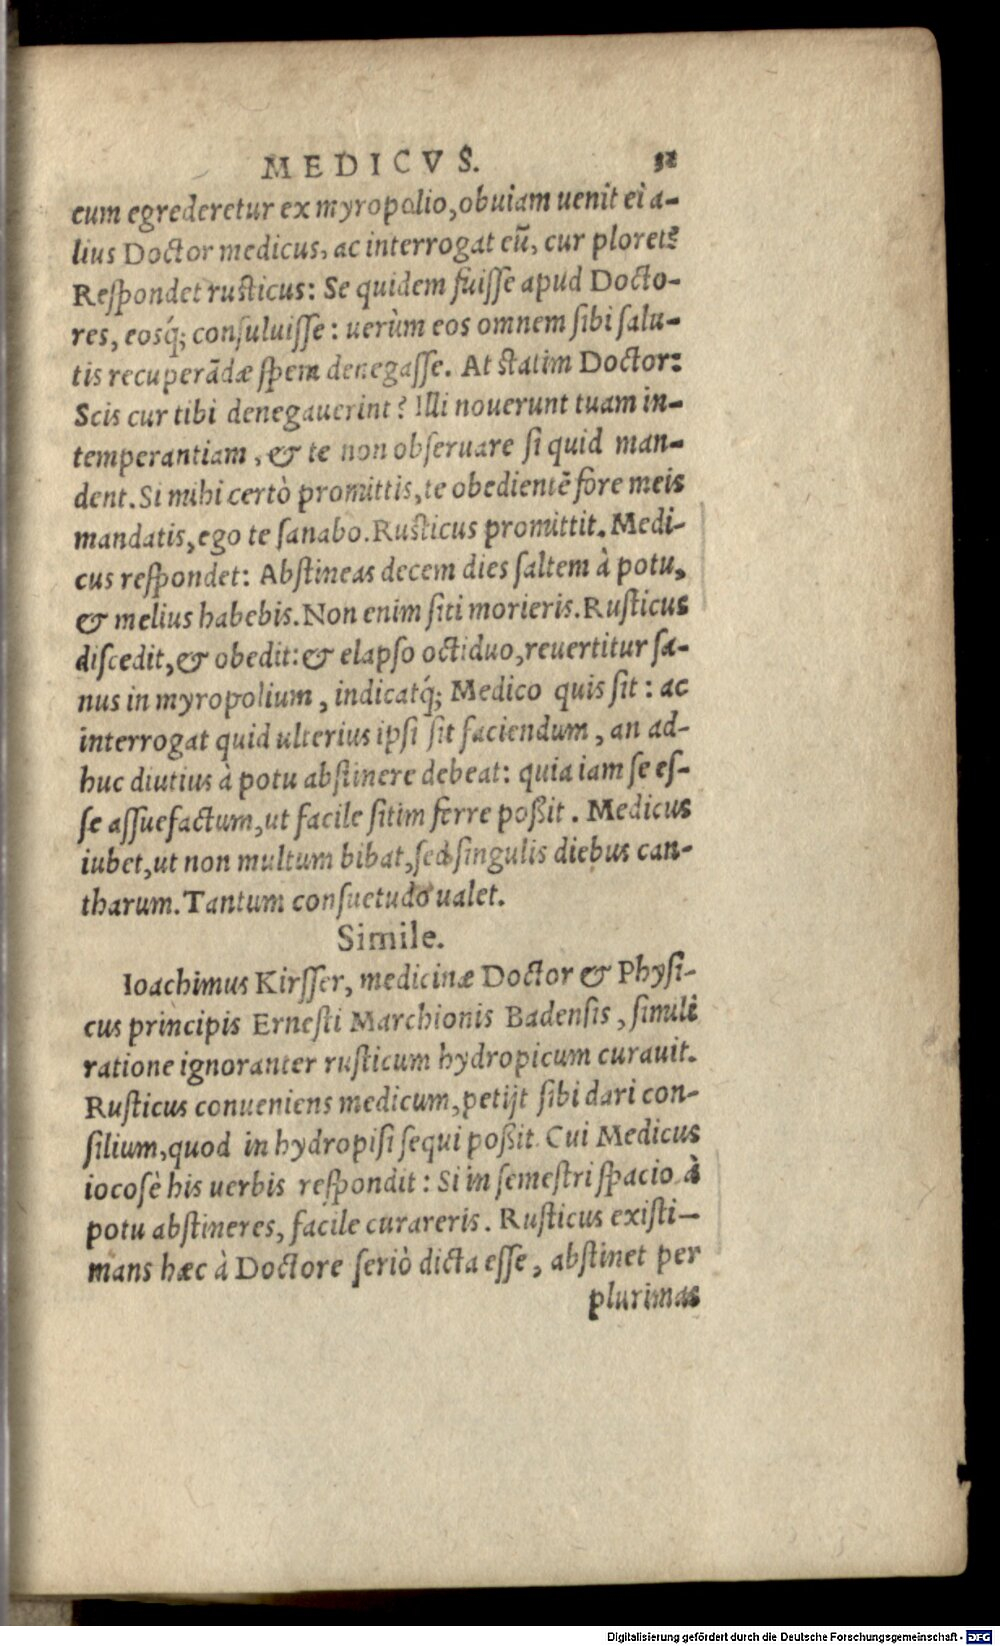 MEDICVS.
cum egrederetur ex myropolio, obuiam uenit ei a-
lius Doctor medicus, ac interrogat eū, cur ploret?
Reſpondet ruſticus: Se quidem fuiſſe apud Docto-
res, eosq́; conſuluiſſe: uerùm eos omnem ſibi ſalu-
tis recuperādæ ſpem denegaſſe. At ſtatim Doctor:
Scis cur tibi denegauerint? Illi nouerunt tuam in-
temperantiam, & te non obſeruare ſi quid man-
dent. Si mihi certò promittis, te obedientē fore meis
mandatis, ego te ſanabo. Ruſticus promittit. Medi-
cus reſpondet: Abſtineas decem dies ſaltem à potu,
& melius habebis. Non enim ſiti morieris. Ruſticus
diſcedit, & obedit: & elapſo octiduo, reuertitur ſa-
nus in myropolium, indicatq́; Medico quis ſit: ac
interrogat quid ulterius ipſi ſit faciendum, an ad-
huc diutius à potu abſtinere debeat: quia iam ſe eſ-
ſe aſſuefactum, ut facile ſitim ferre poßit. Medicus
iubet, ut non multum bibat, ſed ſingulis diebus can-
tharum. Tantum conſuetudo ualet.
Simile.
Ioachimus Kirſſer, medicinæ Doctor & Phyſi-
cus principis Erneſti Marchionis Badenſis, ſimili
ratione ignoranter ruſticum hydropicum curauit.
Ruſticus conueniens medicum, petijt ſibi dari con-
ſilium, quod in hydropiſi ſequi poßit. Cui Medicus
iocoſè his uerbis reſpondit: Si in ſemeſtri ſpacio à
potu abſtineres, facile curareris. Ruſticus exiſti-
mans hæc à Doctore ſeriò dicta eſſe, abſtinet per
plurimas
Digitalisierung gefördert durch die Deutsche Forschungsgemeinschaft - DFG